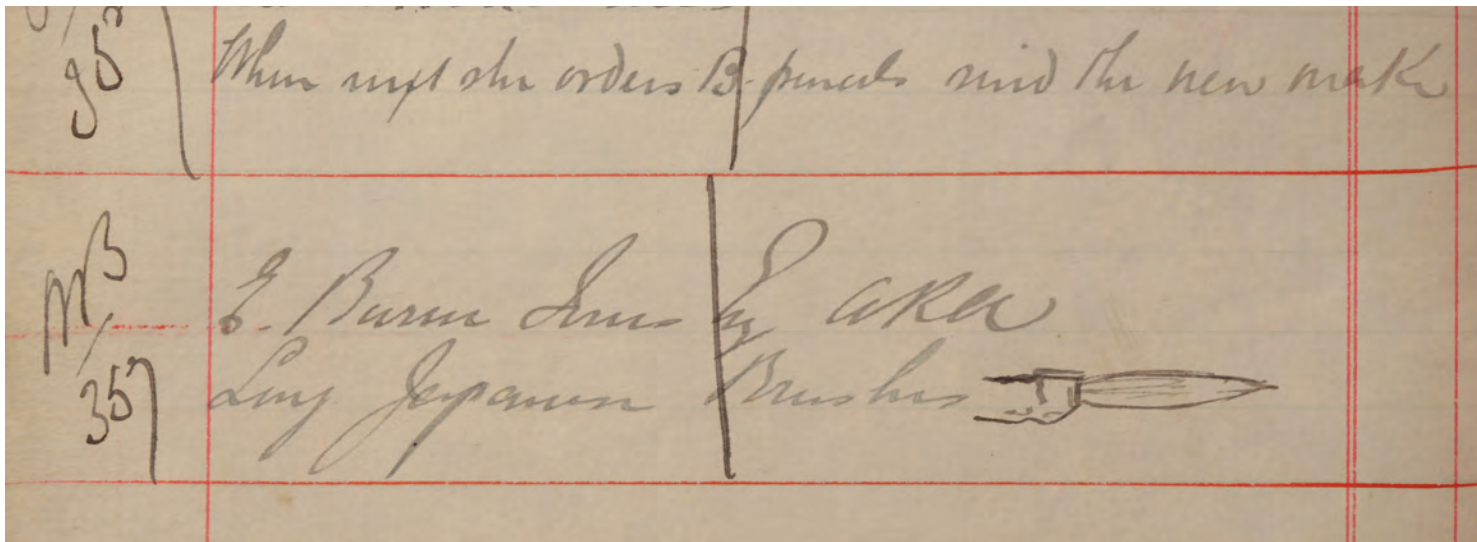 95
When next she orders B. pencils send the new make
MB/
35
E. Burne Jones Esq ARA
Long Japanese Brushes